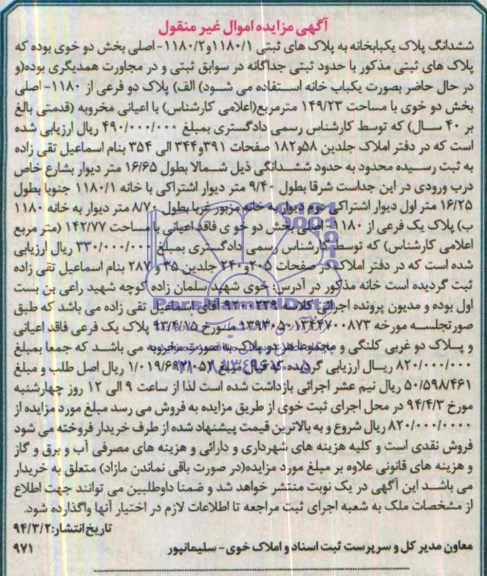 آگهی مزایده اموال غیر منقول
ششدانگ پلاک یکبابخانه به پلاک های ثبتی ۱۱۸۰/۱و۱۱۸۰/۲-اصلی بخش دو خوی بوده که
پلاک های ثبتی مذکور با حدود ثبتی جداگانه در سوابق ثبتی و در مجاورت همدیگری بوده(و
در حال حاضر بصورت یکباب خانه استفاده می شود) الف) پلاک دو فرعی از ۱۱۸۰-اصلی
بخش دو خوی با مساحت ۱۴۹/۲۳ مترمربع(اعلامی کارشناس) با اعیانی مخروبه (قدمتی بالغ
بر ۴۰ سال) که توسط کارشناس رسمی دادگستری بمبلغ ۴۹۰/۰۰۰/۰۰۰ ریال ارزیابی شده
است که در دفتر املاک جلدین ۵۸و۱۸۲ صفحات ۳۹۱و۳۴۴ الی ۳۵۴ بنام اسماعیل تقی زاده
به ثبت رسیده محدود به حدود ششدانگی ذیل شمالا بطول ۱۶/۶۵ متر دیوار بشارع خاص
درب ورودی در این جداست شرقا بطول ۹/۴۰ متر دیوار اشتراکی با خانه ۱۱۸۰/۱ جنوبا بطول
۱۶/۲۵ متر اول دیوار اشتراکی دوم دیوار به خانه مزبور غربا بطول ۸/۷۰ متر دیوار به خانه ۱۱۸۰
ب) پلاک یک فرعی از ۱۱۸۰-اصلی بخش دو خوی فاقد اعیانی با مساحت ۱۴۲/۷۷ (متر مربع
اعلامی کارشناس) که توسط کارشناس رسمی دادگستری بمبلغ ۳۳۰/۰۰۰/۰۰۰ ریال ارزیابی
شده است که در دفتر املاک در صفحات ۲۰۵و۲۴۰ جلدین ۳۵ و ۲۸۷ بنام اسماعیل تقی زاده
ثبت گردیده است خانه مذکور در آدرس: خوی شهید سلمان زاده کوچه شهید راعی بن بست
اول بوده و مدیون پرونده اجرائی کلاسه آقای اسماعیل تقی زاده می باشد که طبق
صورتجلسه مورخه مورخ ۹۳/۴/۸۵ پلاک یک فرعی فاقد اعیانی
و پلاک دو غربی کلنگی و مجموعا هر دو پلاک به صورت مخروبه می باشد که جمعا بمبلغ
۸۲۰/۰۰۰/۰۰۰ ریال ارزیابی گردیده که قبال مبلغ ریال اصل طلب و مبلغ
۵۰/۵۹۸/۴۶۱ ریال نیم عشر اجرائی بازداشت شده است لذا از ساعت ۹ الی ۱۲ روز چهارشنبه
مورخ ۹۴/۴/۳ در محل اجرای ثبت خوی از طریق مزایده به فروش می رسد مبلغ مورد مزایده از
۸۲۰/۰۰۰/۰۰۰ ریال شروع و به بالاترین قیمت پیشنهاد شده از طرف خریدار فروخته می شود
فروش نقدی است و کلیه هزینه های شهرداری و دارائی و هزینه های مصرفی آب و برق و گاز
و هزینه های قانونی علاوه بر مبلغ مورد مزایده(در صورت باقی نماندن مازاد) متعلق به خریدار
می باشد این آگهی در یک نوبت منتشر خواهد شد و ضمنا داوطلبین می توانند جهت اطلاع
از مشخصات ملک به شعبه اجرای ثبت مراجعه تا اطلاعات لازم در اختیار آنها واگذارده شود.
تاریخ انتشار: ۹۴/۳/۲
معاون مدیر کل و سرپرست ثبت اسناد و املاک خوی- سلیمانپور ۹۷۱